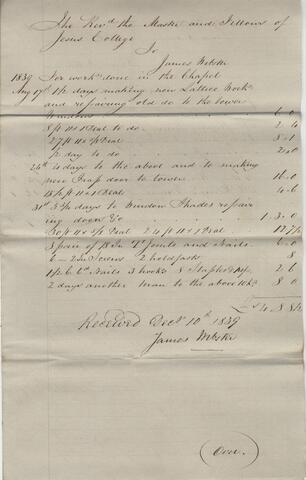 The Revd. the Master and Fellows of
Jesus College
To
James Webster
1839 For work done in the Chapel
Augt 17th 1½ days making new Lattice Work
and repairing old do to the tower
Windows 6 0
8 ft 11 x 1 Deal to do. 2 4
27 ft Deal 8 1
½ day to do 2 0
24th 4 days to the above and to making
new Trap door to tower 16 0
18 ft 11 x 1 Deal 4 6
31st days to Window Shades repair
ing doors &c 1 3 0
30 ft 11 Deal 24 ft 11 x 1 Deal 12 7½
8 pair of 18 In T Joints and Nails 6 0
6 – 2 In Screws 2 holdfasts 8
1½ lb 6d Nails 3 hooks & Staples 2 6
2 days another man to the above Work 8 0
£4 8 8½
Received Decr 10th 1839
James Webster
(Over)